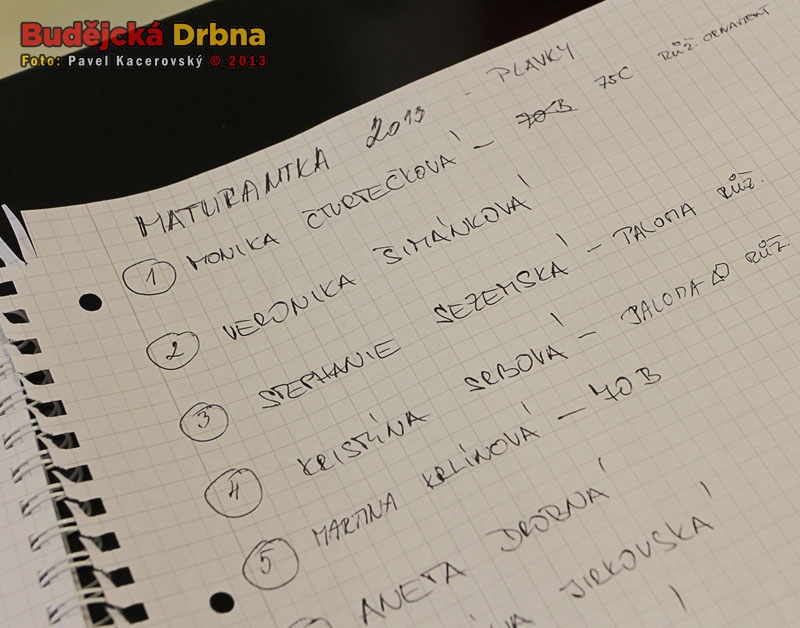 Budějcká Drbna
Foto: Pavel Kacerovský © 2013
MATURANTKA 2013 - PLAVKY
1 MONIKA ČTVRTEČKOVÁ - 70 B 75C RŮŽ. ORNAMENT
2 VERONIKA ŠIMÁNKOVÁ
3 STEPHANIE SEZEMSKÁ - PALOMA RŮŽ.
4 KRISTÍNA SRBOVÁ - PALOMA RŮŽ.
5 MARTINA KRLÍNOVÁ - 70 B
ANETA DROBNÁ
JIRKOVSKÁ